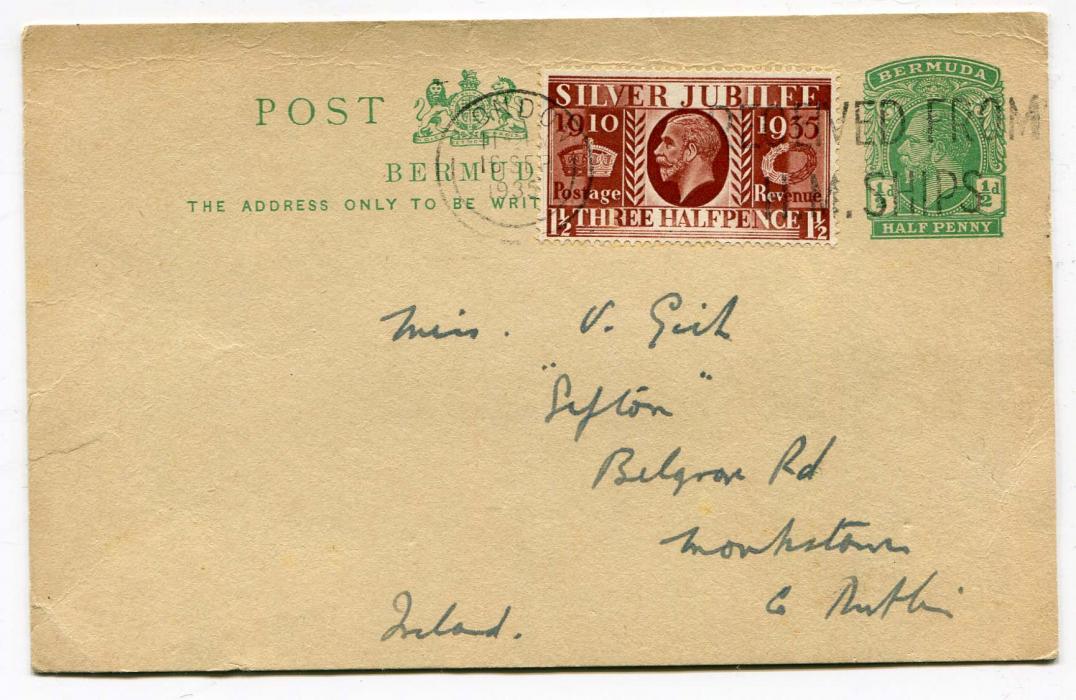 POST
BERMUD
THE ADDRESS ONLY TO BE WRIT
LONDON
16 SEP
1935
SILVER JUBILEE
1910 1935
Postage Revenue
1½ THREE HALFPENCE 1½
RECEIVED FROM
H.M. SHIPS
BERMUDA
½d ½d
HALF PENNY
Miss. V.
"Sefton"
Belgrave Rd
Monkstown
Co Dublin
Ireland.